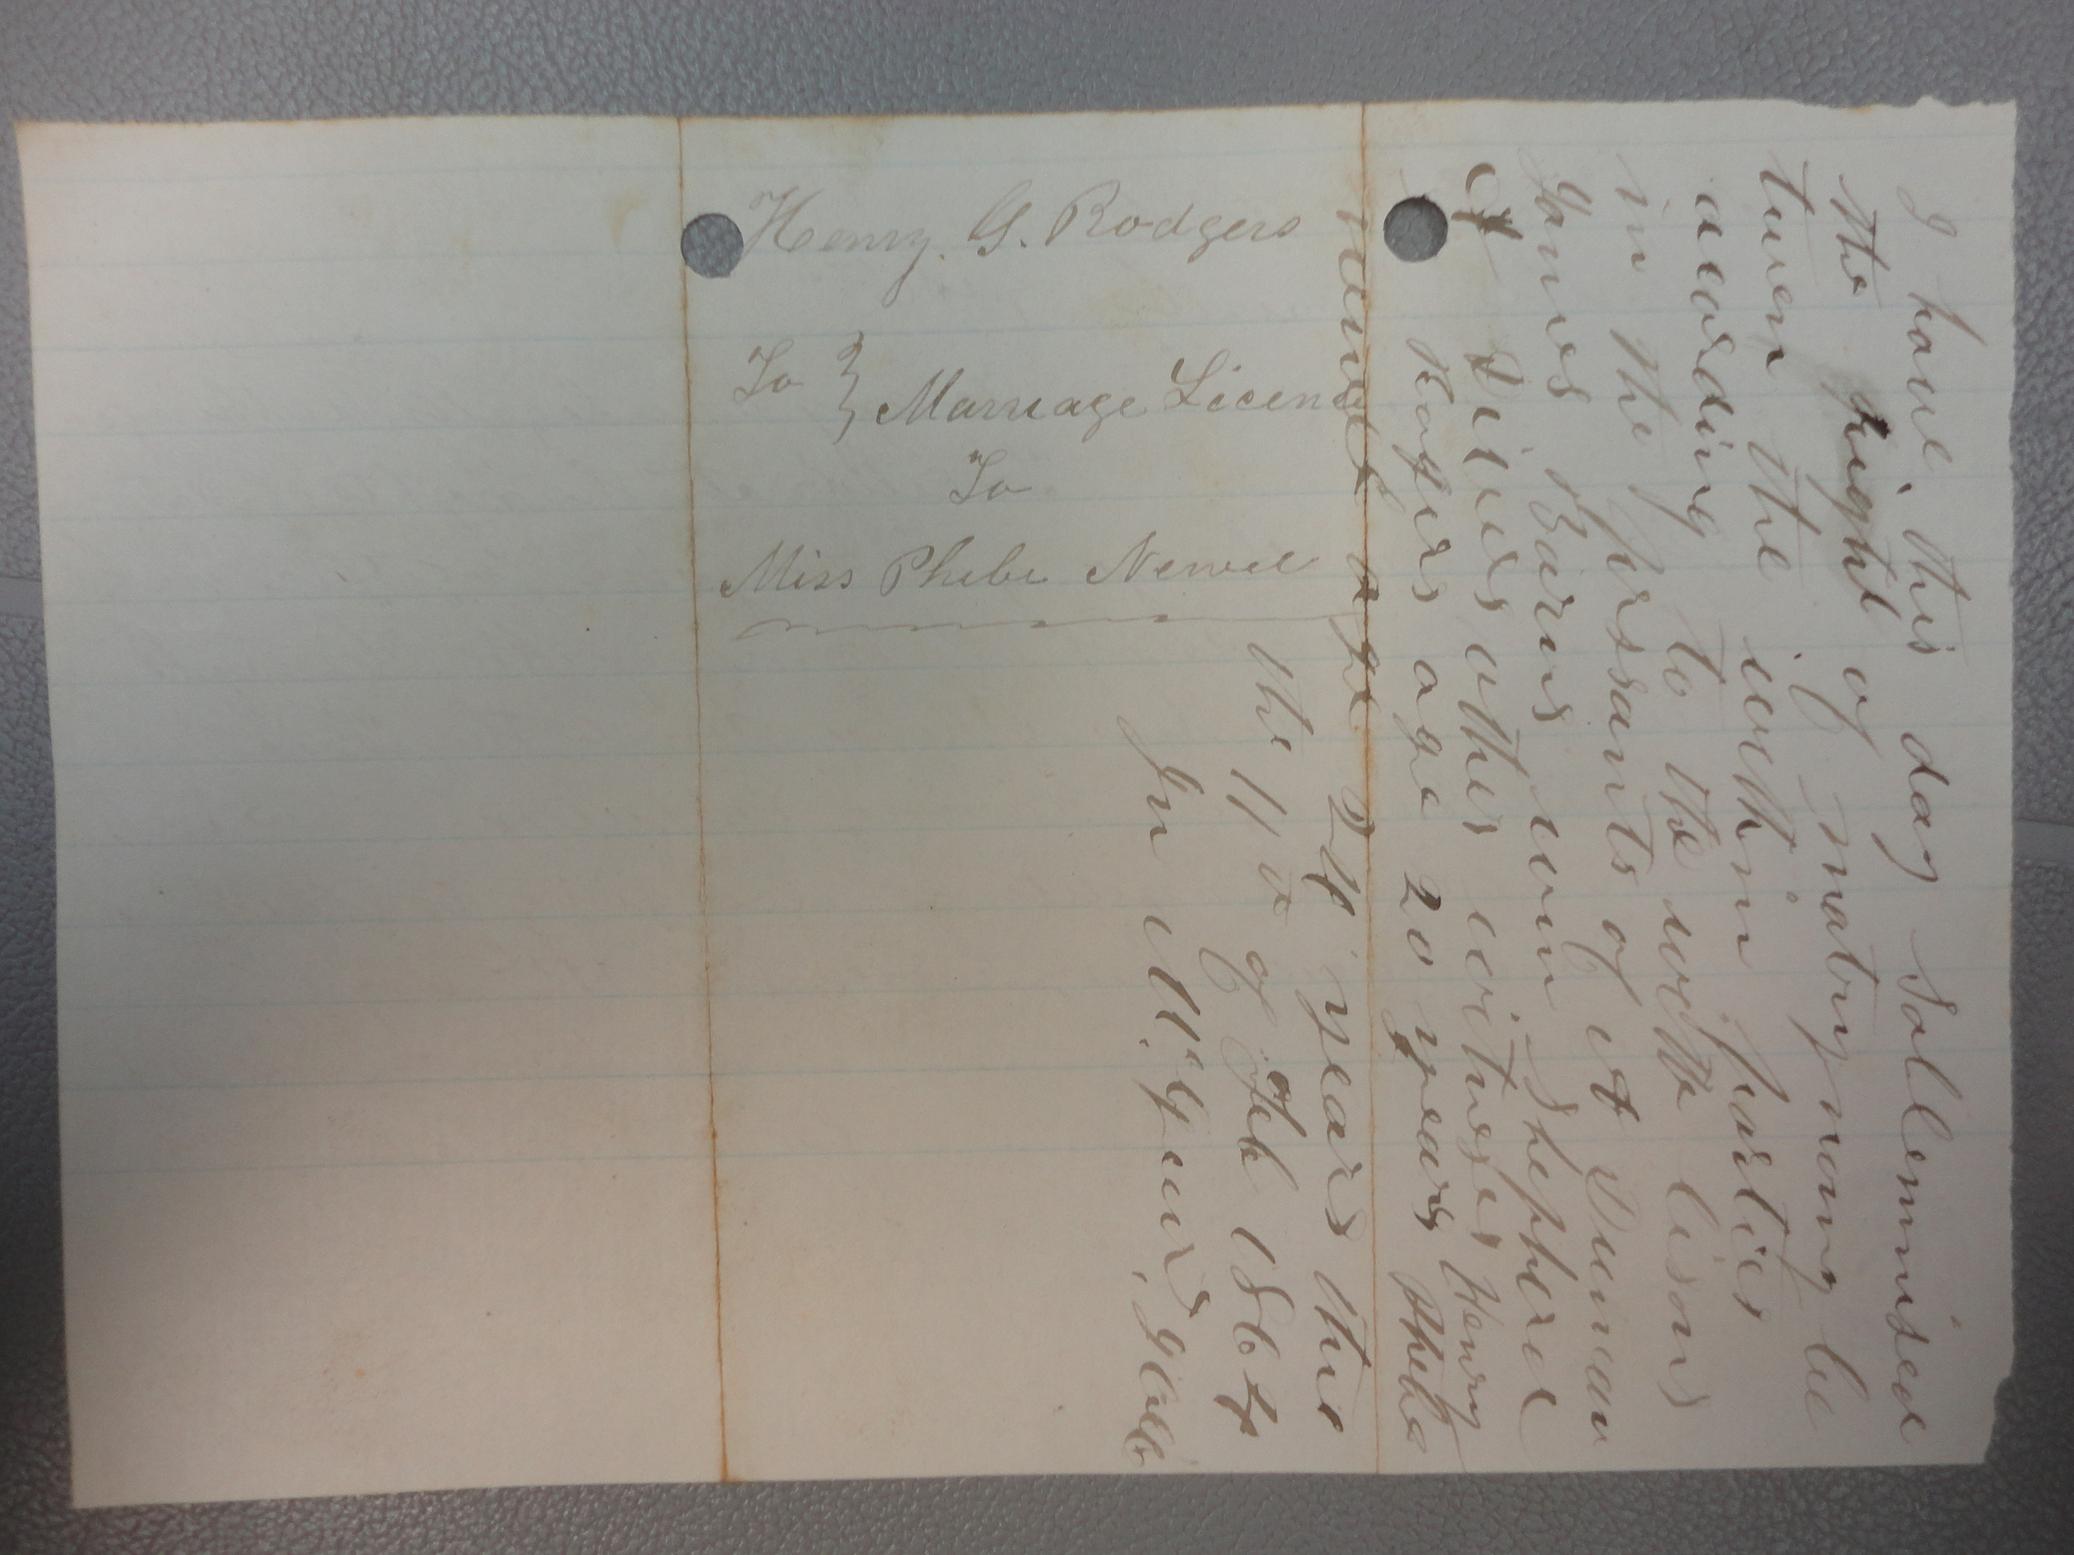 Henry. G. Rodgers
To } Marriage License
To
Miss Phebe Newel
I have this day Sollemnised
the Right of matrymony be
tween the within parties
acording to the with lisons
in the prssants of A Duncan
James Burns Wm Shepherd
& Divers other witneses Henry
Rogers age 20 years Phebe
newel age 24 years this
the 11 o of Feb 1864